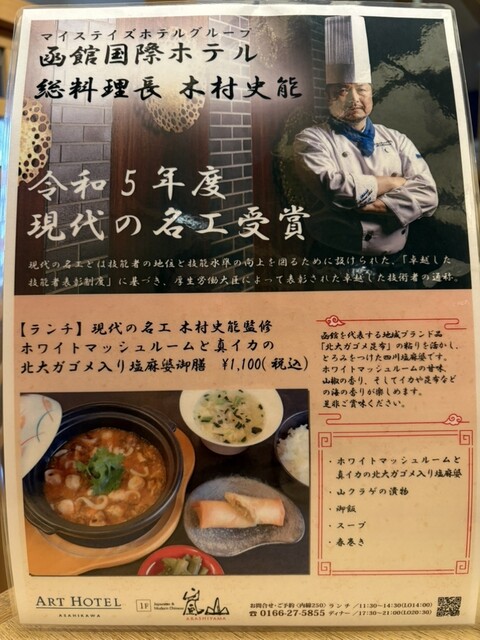 マイステイズホテルグループ
函館国際ホテル
総料理長 木村史能
令和5年度
現代の名工受賞
現代の名工とは技能者の地位と技能水準の向上を図るために設けられた、「卓越した
技能者表彰制度」に基づき、厚生労働大臣によって表彰された卓越した技術者の通称。
【ランチ】現代の名工 木村史能監修
ホワイトマッシュルームと真イカの
北大ガゴメ入り塩麻婆御膳 ¥1,100(税込)
函館を代表する地域ブランド品
「北大ガゴメ昆布」の粘りを活かし、
とろみをつけた四川塩麻婆です。
ホワイトマッシュルームの甘味、
山椒の香り、そしてイカや昆布など
の海の香りが楽しめます。
是非ご賞味ください。
・ホワイトマッシュルームと
真イカの北大ガゴメ入り塩麻婆
・山クラゲの漬物
・御飯
・スープ
・春巻き
ART HOTEL
ASAHIKAWA
1F
Japanese &
Modern Chinese
嵐山
ARASHIYAMA
お問合せ・ご予約(内線250)
☎0166-27-5855
ランチ/11:30~14:30(LO14:00)
ディナー/17:30~21:00(LO20:30)